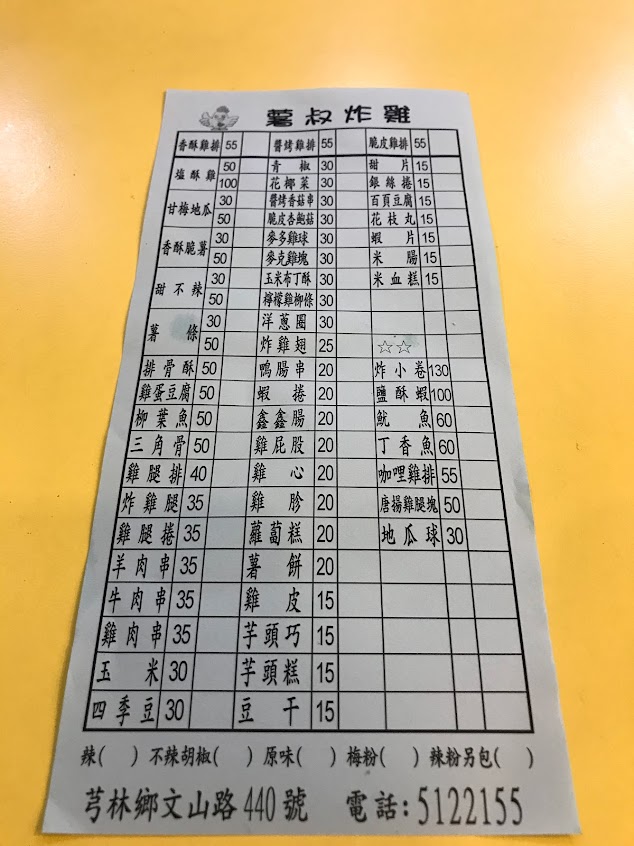 薯叔炸雞
香酥雞排 55 醬烤雞排 55 脆皮雞排 55
塩酥雞 50 青椒 30 甜片 15
100 花椰菜 30 銀絲捲 15
甘梅地瓜 30 醬烤香菇串 30 百頁豆腐 15
50 脆皮杏鮑菇 30 花枝丸 15
香酥脆薯 30 麥多雞球 30 蝦片 15
50 麥克雞塊 30 米腸 15
甜不辣 30 玉米布丁酥 30 米血糕 15
50 檸檬雞柳條 30
薯條 30 洋蔥圈 30
50 炸雞翅 25 ☆☆
排骨酥 50 鴨腸串 20 炸小卷 130
雞蛋豆腐 50 蝦捲 20 鹽酥蝦 100
柳葉魚 50 鑫鑫腸 20 魷魚 60
三角骨 50 雞屁股 20 丁香魚 60
雞腿排 40 雞心 20 咖哩雞排 55
炸雞腿 35 雞胗 20 唐揚雞腿塊 50
雞腿捲 35 蘿蔔糕 20 地瓜球 30
羊肉串 35 薯餅 20
牛肉串 35 雞皮 15
雞肉串 35 芋頭巧 15
玉米 30 芋頭糕 15
四季豆 30 豆干 15
辣( ) 不辣胡椒( ) 原味( ) 梅粉( ) 辣粉另包( )
芎林鄉文山路440號 電話:5122155